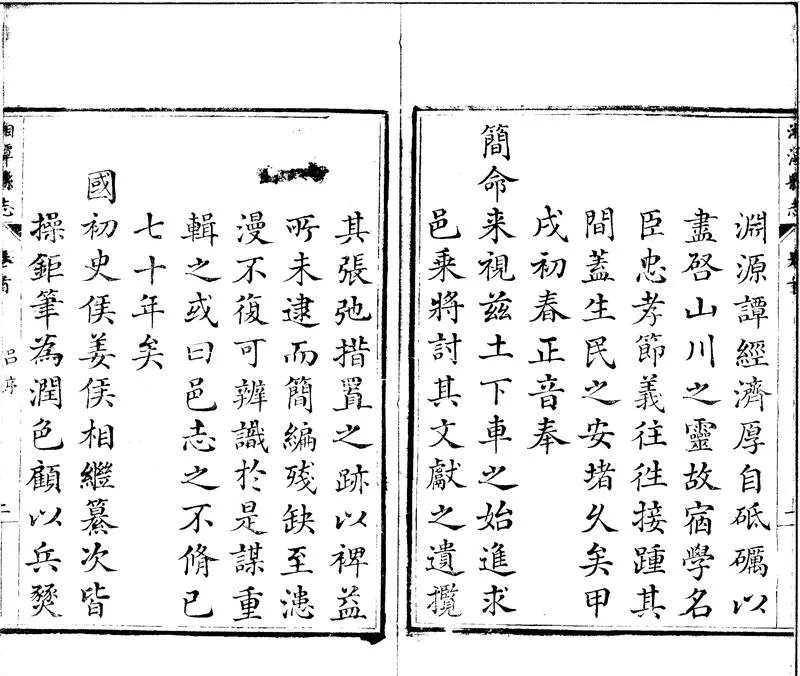 湘潭縣志
卷首
淵源譚經濟厚自砥礪以
盡啓山川之靈故宿學名
臣忠孝節義往往接踵其
間蓋生民之安堵久矣甲
戌初春正音奉
簡命来視兹土下車之始進求
邑乗將討其文獻之遺攬
其張弛措置之跡以裨益
所未逮而簡編殘缺至漶
漫不復可辨識於是謀重
輯之或曰邑志之不脩已
七十年矣
國初史侯姜侯相繼纂次皆
操鉅筆為潤色顧以兵燹
湘潭縣志
卷首
呂序
二